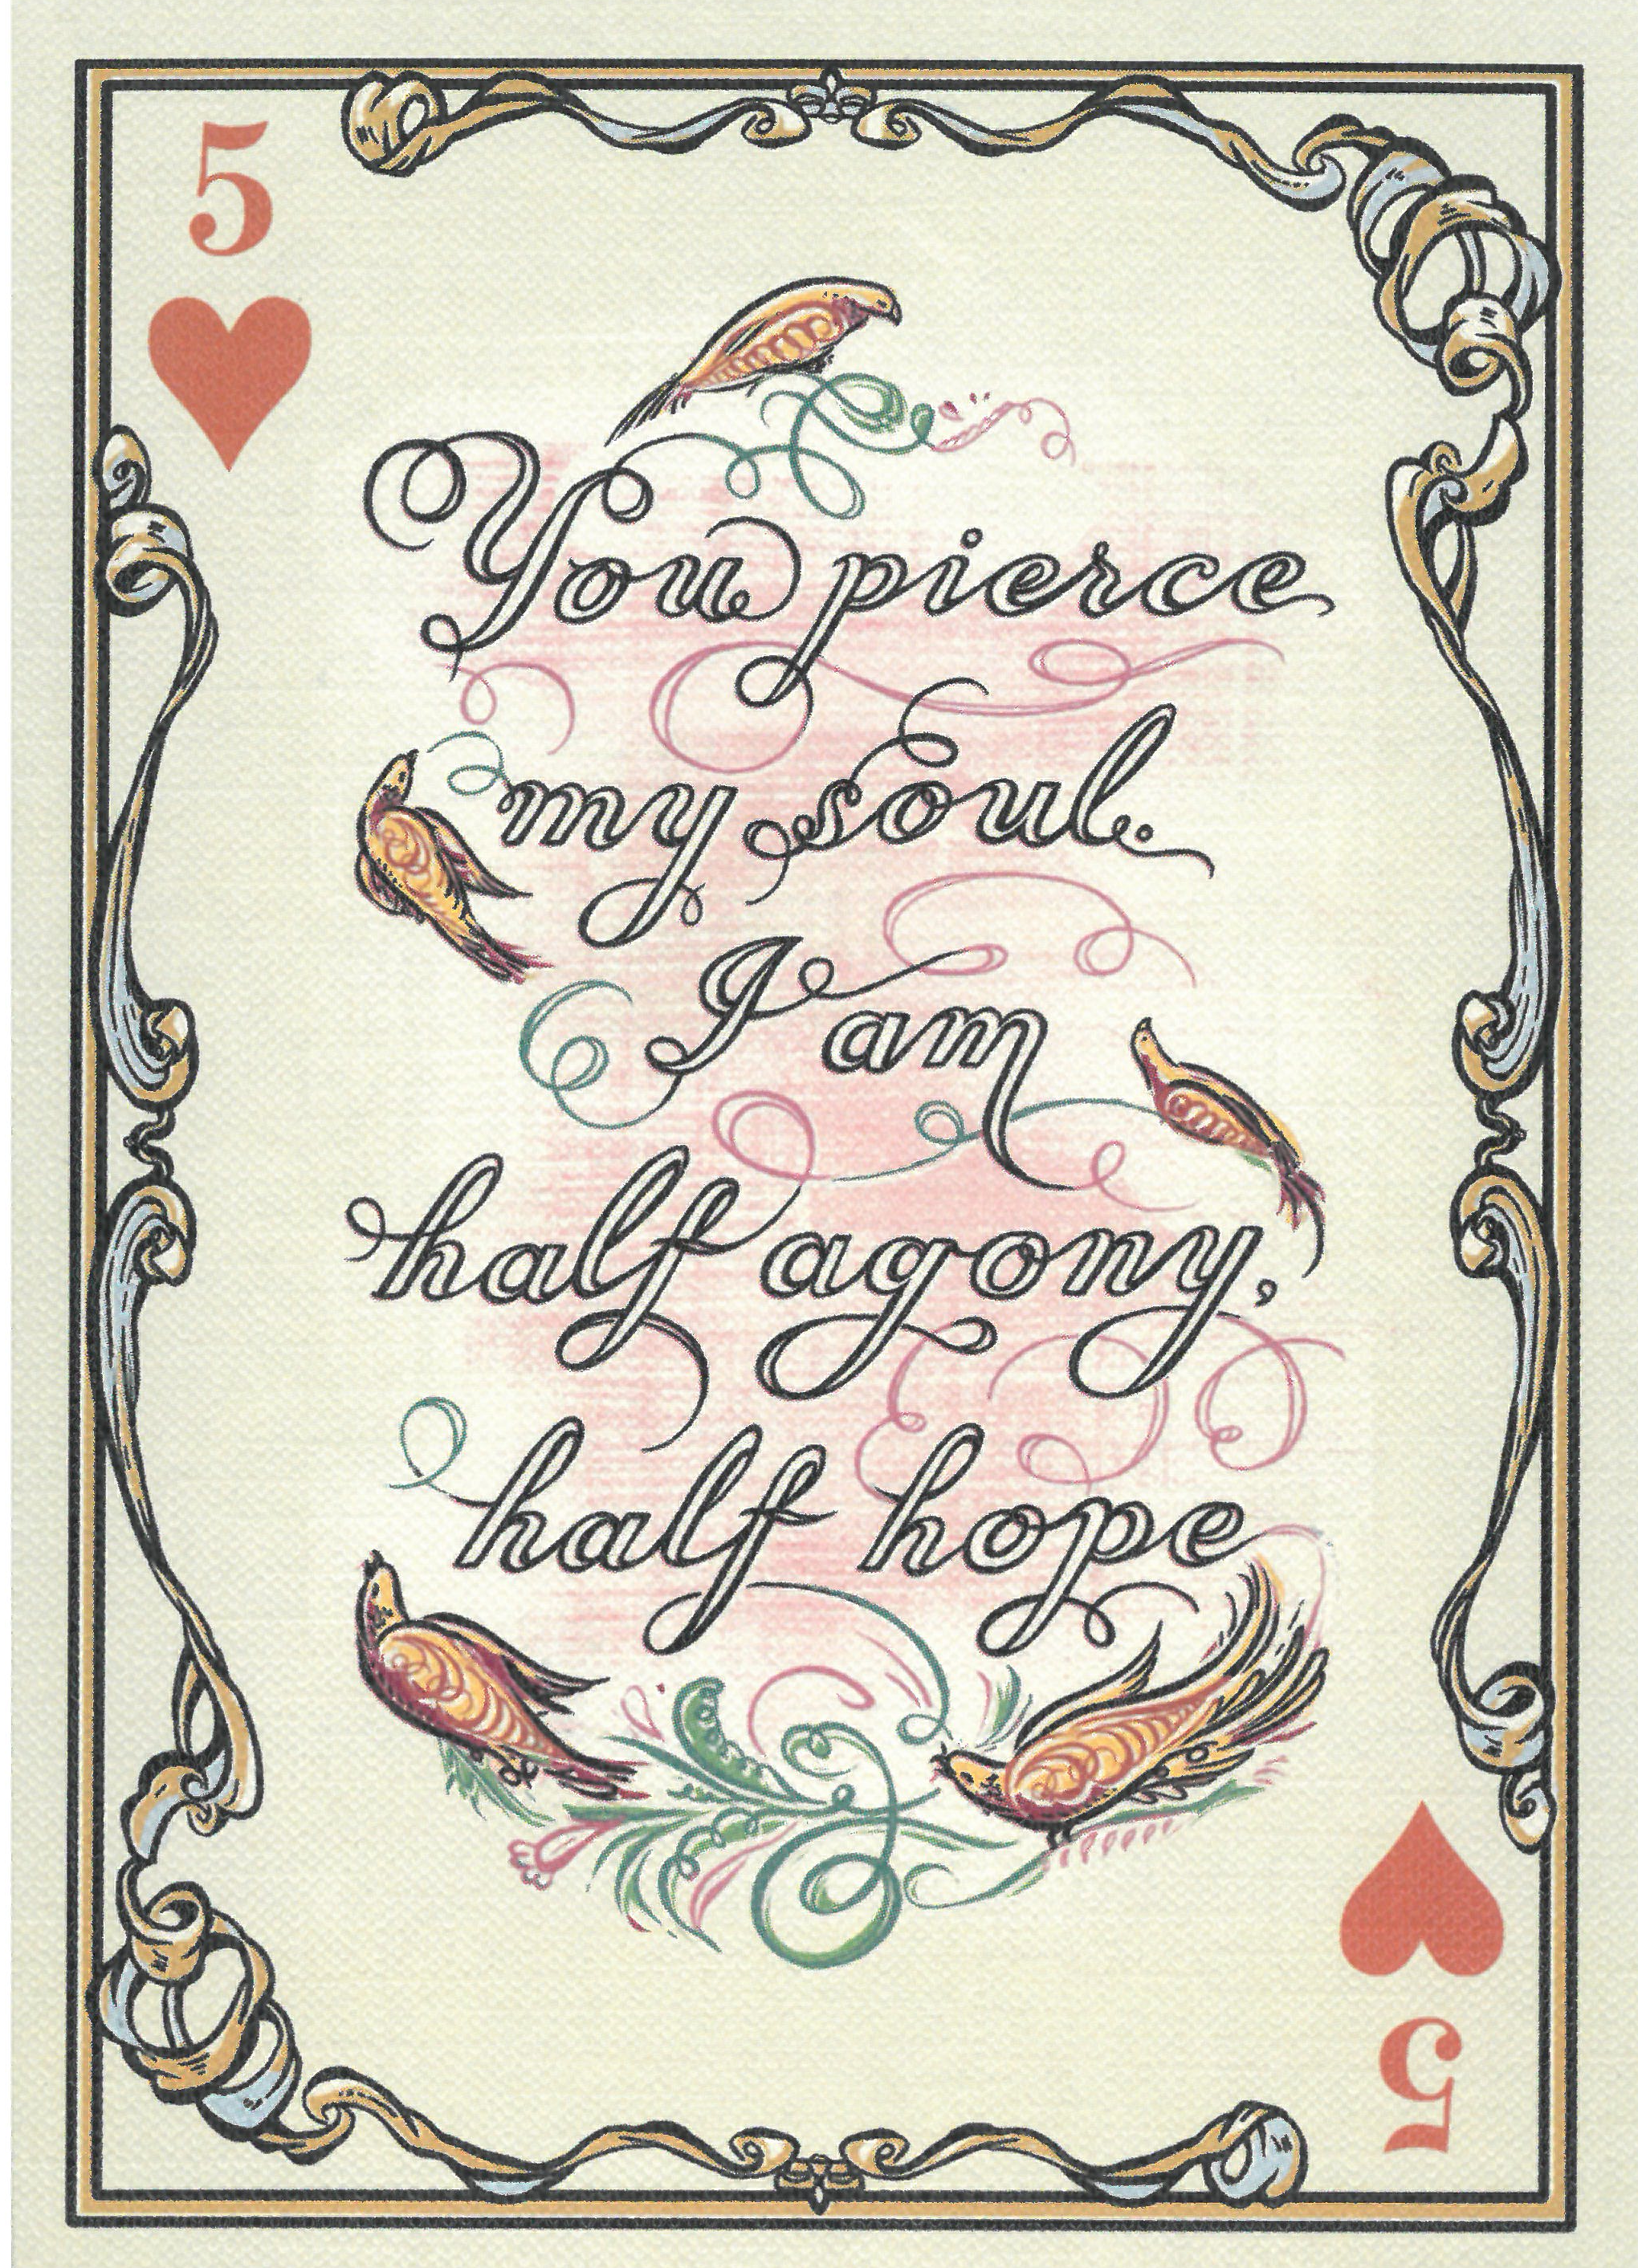 5
You pierce
my soul.
I am
half agony,
half hope
5